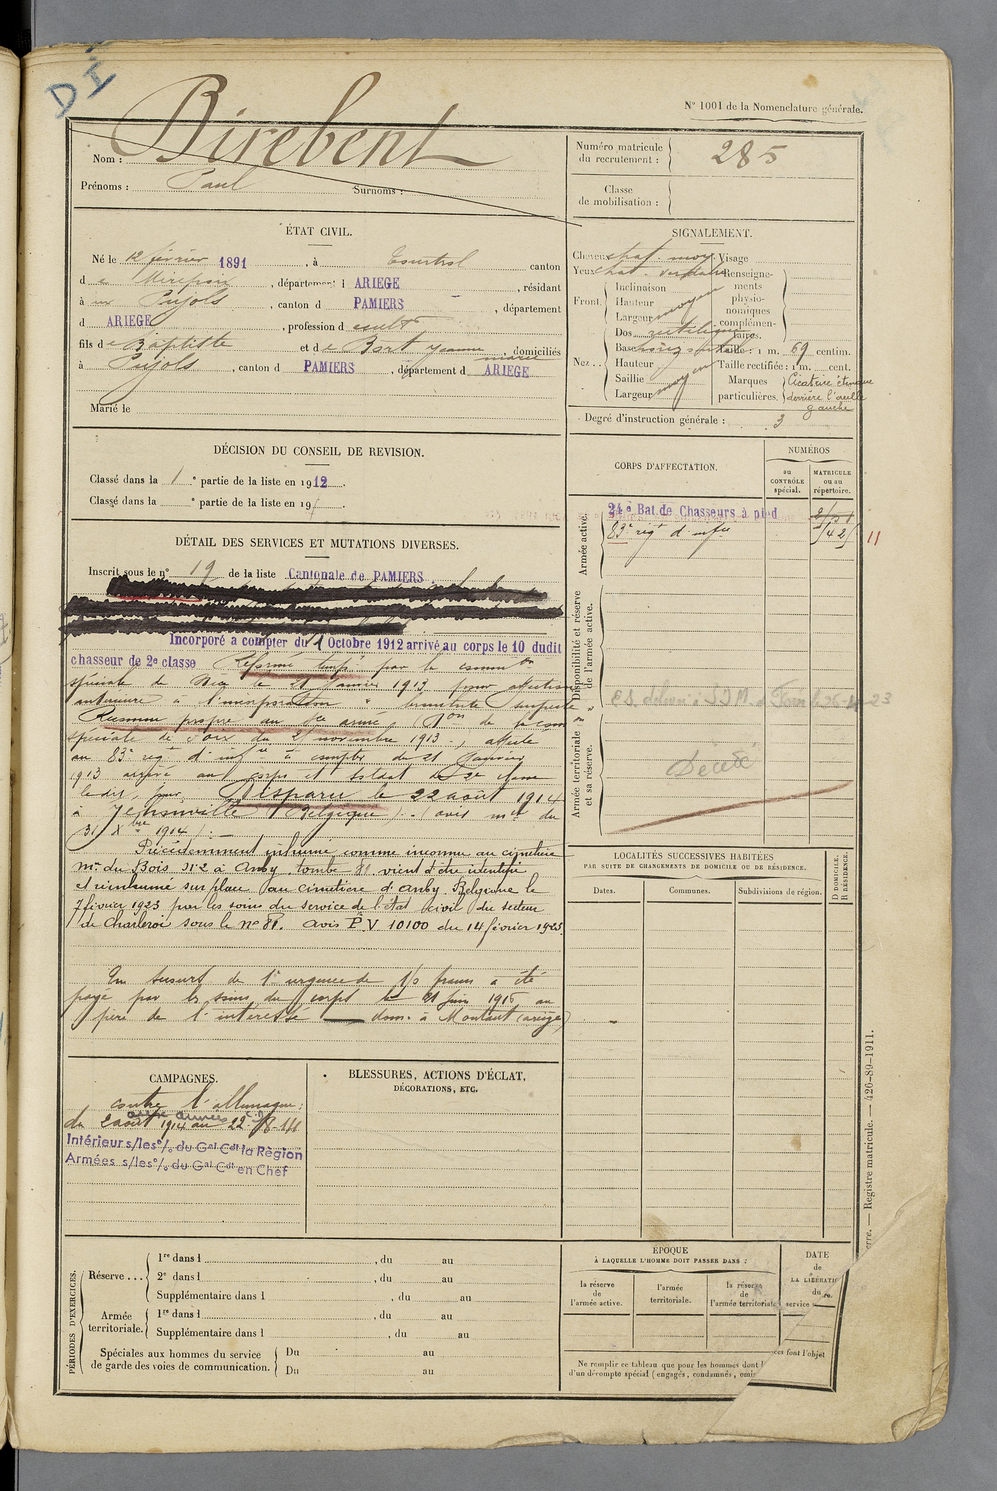 DI
N° 1001 de la Nomenclature générale.
Nom : Birebent
Prénoms : Paul Surnoms :
Numéro matricule du recrutement : 285
Classe de mobilisation :
ÉTAT CIVIL.
Né le 12 février 1891, à Tourtrol canton
de Mirepoix, département d ARIEGE, résidant
à Pujols, canton d PAMIERS, département
d ARIEGE, profession de cultr
fils de Baptiste et de Bort Jeanne marie, domiciliés
à Pujols, canton d PAMIERS, département d ARIEGE
Marié le
SIGNALEMENT.
Cheveux chat. moy. Visage
Yeux chat. verdatre Renseignements physionomiques complémentaires.
Front. Inclinaison
Hauteur
Largeur moyen
Nez. Dos rectiligne
Base
Hauteur
Saillie
Largeur moyen
Taille : 1 m. 69 centim.
Taille rectifiée : 1 m. cent.
Marques particulières. Cicatrice
derrière l'oreille
gauche
Degré d'instruction générale : 3
DÉCISION DU CONSEIL DE REVISION.
Classé dans la 1 e partie de la liste en 1912.
Classé dans la e partie de la liste en 19
DÉTAIL DES SERVICES ET MUTATIONS DIVERSES.
Inscrit sous le n° 19 de la liste Cantonale de PAMIERS
Incorporé à compter du 1 Octobre 1912 arrivé au corps le 10 dudit
chasseur de 2e classe Réformé temp. par la comm on
spéciale de Nice le 21 Janvier 1913 pour
antérieure à l'incorporation
Reconnu propre au sce armé, (Don de la Com
spéciale de Foix du 2 novembre 1913., affecté
au 83e régt d'infie à compter du 21 Janvier
1913 arrivé au corps et soldat de 2e classe
ledit jour. Disparu le 22 août 1914
à Jehonville (Belgique). (avis mel du
31 Xbre 1914).
Précédemment inhumé comme inconnu au cimetière
mre du Bois N°2 à Anloy, tombe 81 vient d'être identifié
et réinhumé sur place au cimetière d'Anloy. Belgique le
7 février 1923 par les soins du service de l'état civil du secteur
de Charleroi sous le n° 81. avis P.V 10100 du 14 février 1923.
Un secours de 1re urgence de 150 francs a été
payé par les soins du corps le 21 juin 1915 au
père de l'intéressé dom. à Montaut (ariège)
CORPS D'AFFECTATION.
NUMÉROS
au CONTRÔLE spécial.
MATRICULE ou au répertoire.
Armée active.
24e Bat de Chasseurs à pied
83e régt d'infie 11
Disponibilité et réserve de l'armée active.
Armée territoriale et sa réserve.
Décédé
LOCALITÉS SUCCESSIVES HABITÉES
PAR SUITE DE CHANGEMENTS DE DOMICILE OU DE RÉSIDENCE.
Dates. Communes. Subdivisions de région.
D DOMICILE, R RÉSIDENCE.
CAMPAGNES.
contre l'allemagne :
du 2 août 1914 au 22-8-14
Intérieur s/les o/o du Gal Cdt la Région
Armées s/les o/o du Gal Cdt en Chef
BLESSURES, ACTIONS D'ÉCLAT,
DÉCORATIONS, ETC.
PÉRIODES D'EXERCICES.
Réserve... 1re dans l , du au
2e dans l , du au
Supplémentaire dans l , du au
Armée territoriale. 1re dans l , du au
Supplémentaire dans l , du au
Spéciales aux hommes du service
de garde des voies de communication. Du au
Du au
ÉPOQUE
À LAQUELLE L'HOMME DOIT PASSER DANS :
la réserve de l'armée active.
l'armée territoriale.
la réserve de l'armée territoriale
DATE de LA LIBÉRATI du service
Ne remplir ce tableau que pour les hommes dont l
ces font l'objet
d'un décompte spécial (engagés, condamnés, omis
erre. — Registre matricule. — 426-89-1911.